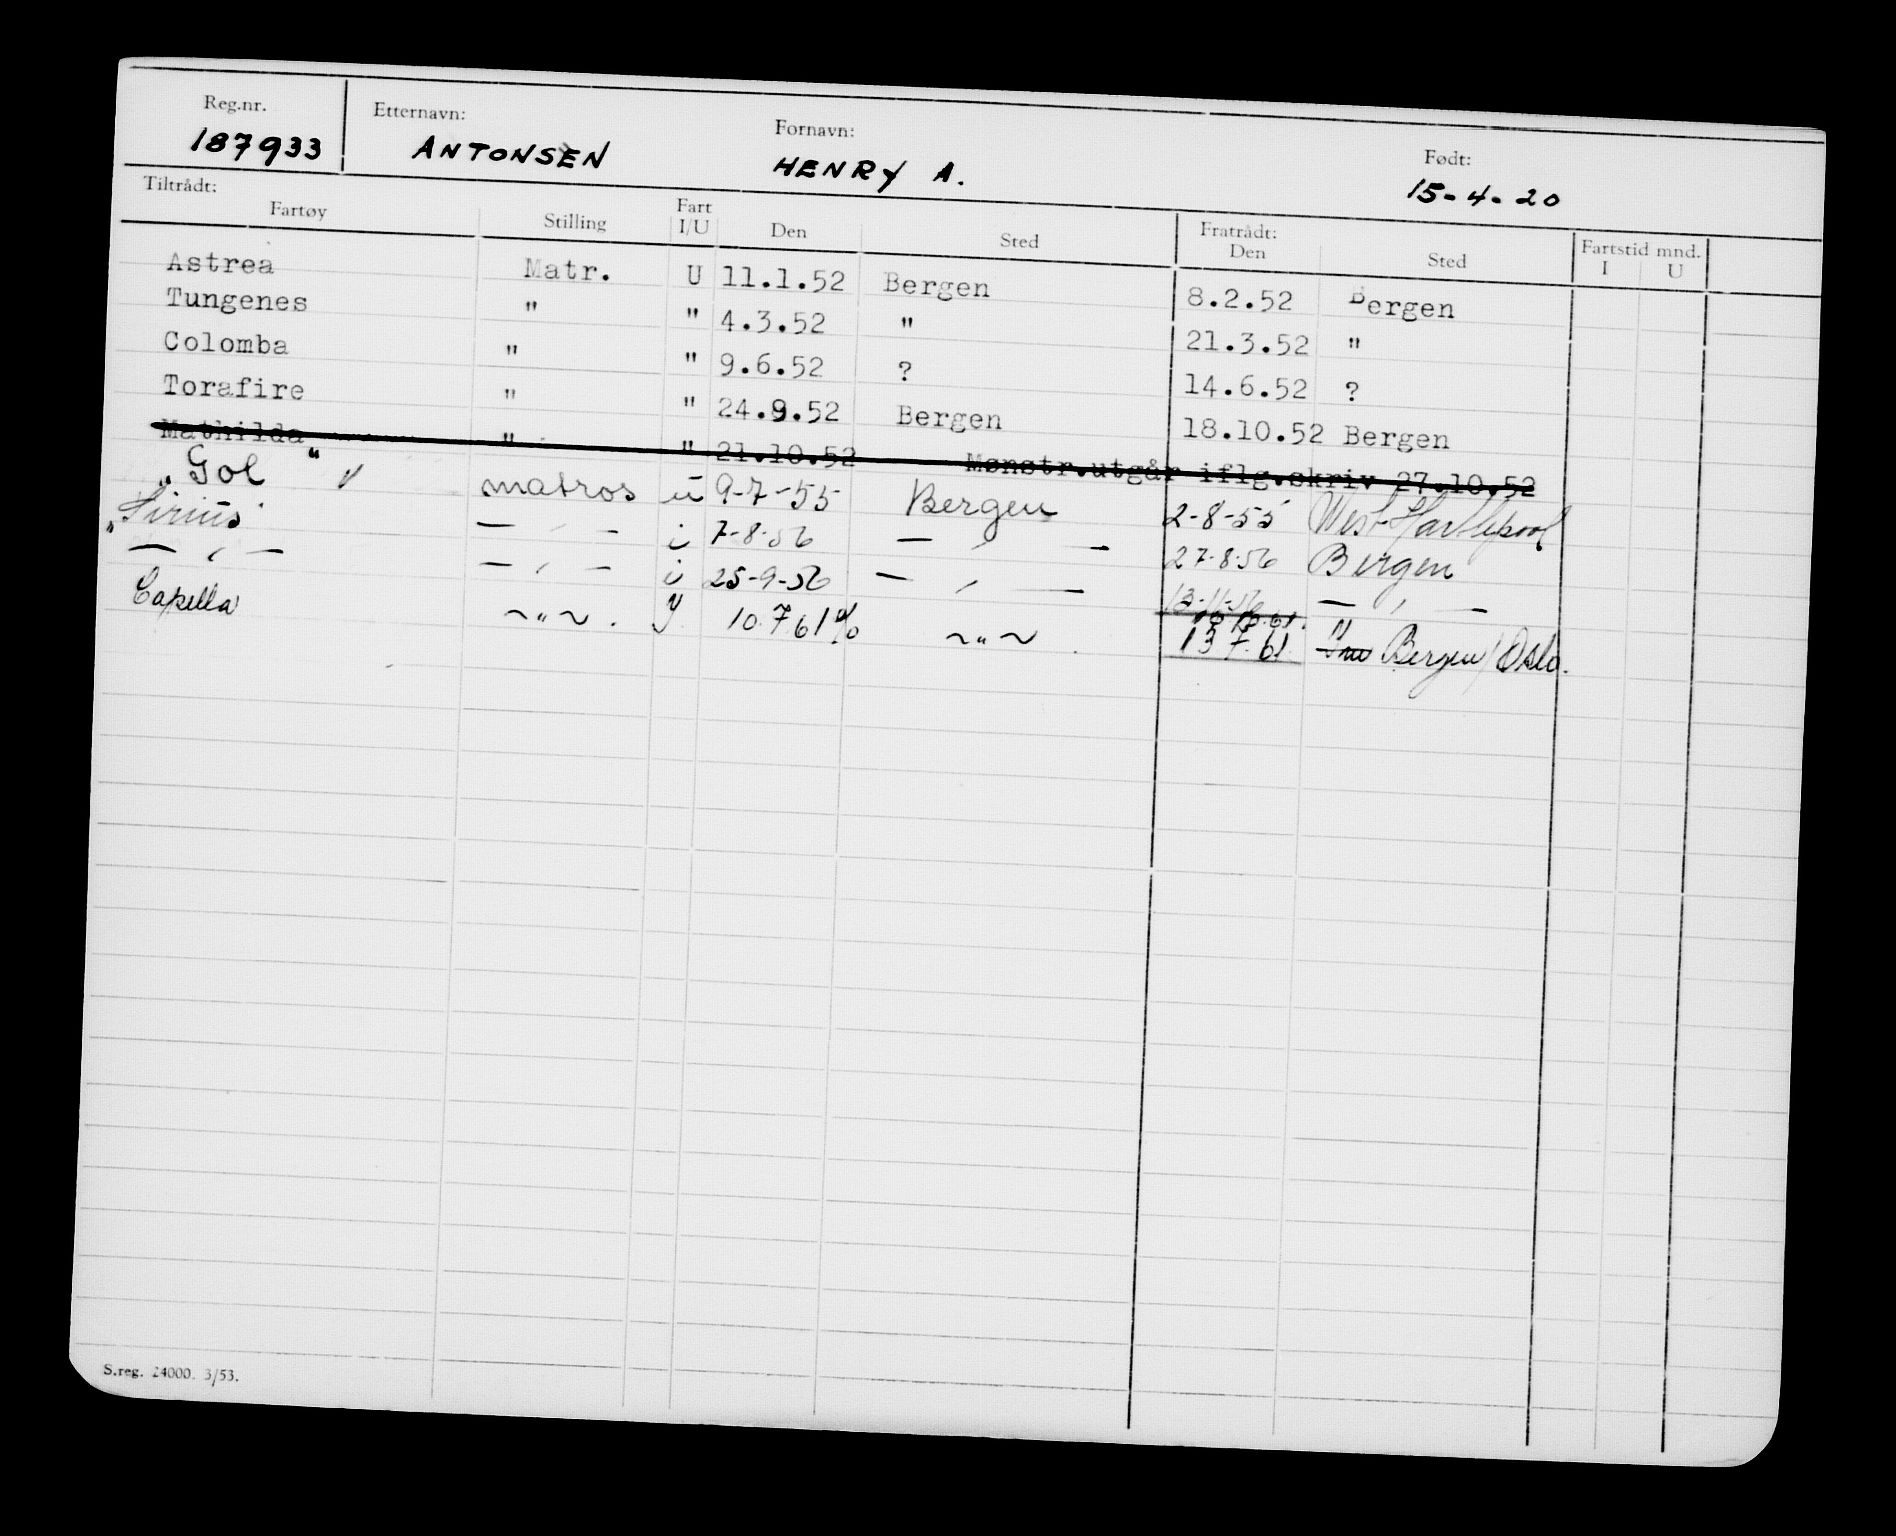 Reg.nr. Etternavn: Fornavn: Født:
187933 ANTONSEN HENRY A. 15-4-20
Tiltrådt: Fratrådt:
Fartøy Stilling Fart I/U Den Sted Den Sted Fartstid mnd. I U
Astrea Matr. U 11.1.52 Bergen 8.2.52 Bergen
Tungenes " " 4.3.52 " 21.3.52 "
Colomba " " 9.6.52 ? 14.6.52 ?
Torafire " " 24.9.52 Bergen 18.10.52 Bergen
Mathilda " " 21.10.52 Mønstr.utgår iflg.skriv 27.10.52
"Gol" matros u 9-7-55 Bergen 2-8-55 West Hartlepool
"Sirius" — " — i 7-8-56 — " — 27-8-56 Bergen
— " — — " — i 25-9-56 — " — 13-11-56 — " —
Capella ~ " ~ . Y 10.7.61 ~ " ~ 13.7.61 Bergen/Oslo.
S.reg. 24000. 3/53.